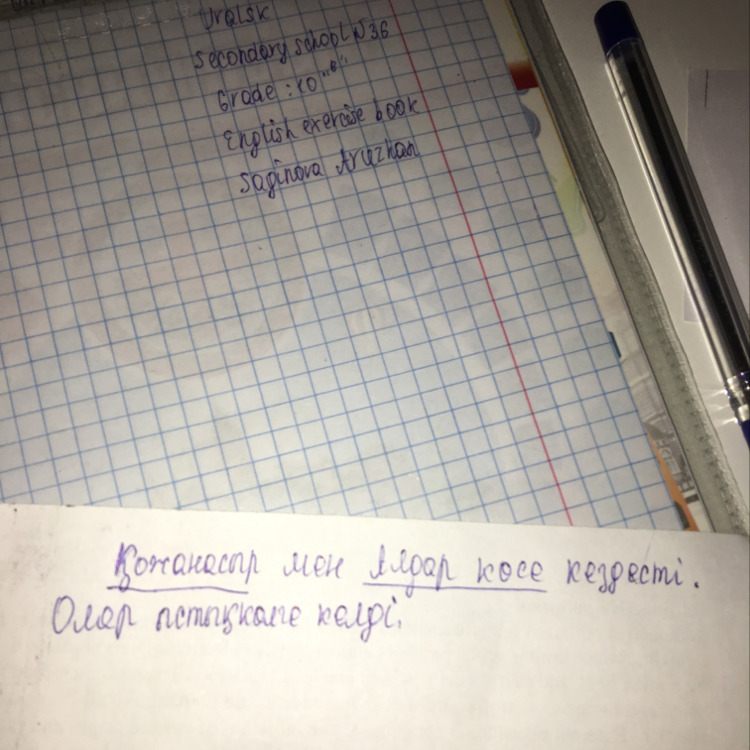 Uralsk
Secondary school №36
Grade: 10 "в"
English exercise book
Saginova Aruzhan
Қожанасыр мен Алдар көсе кездесті.
Олар келді.